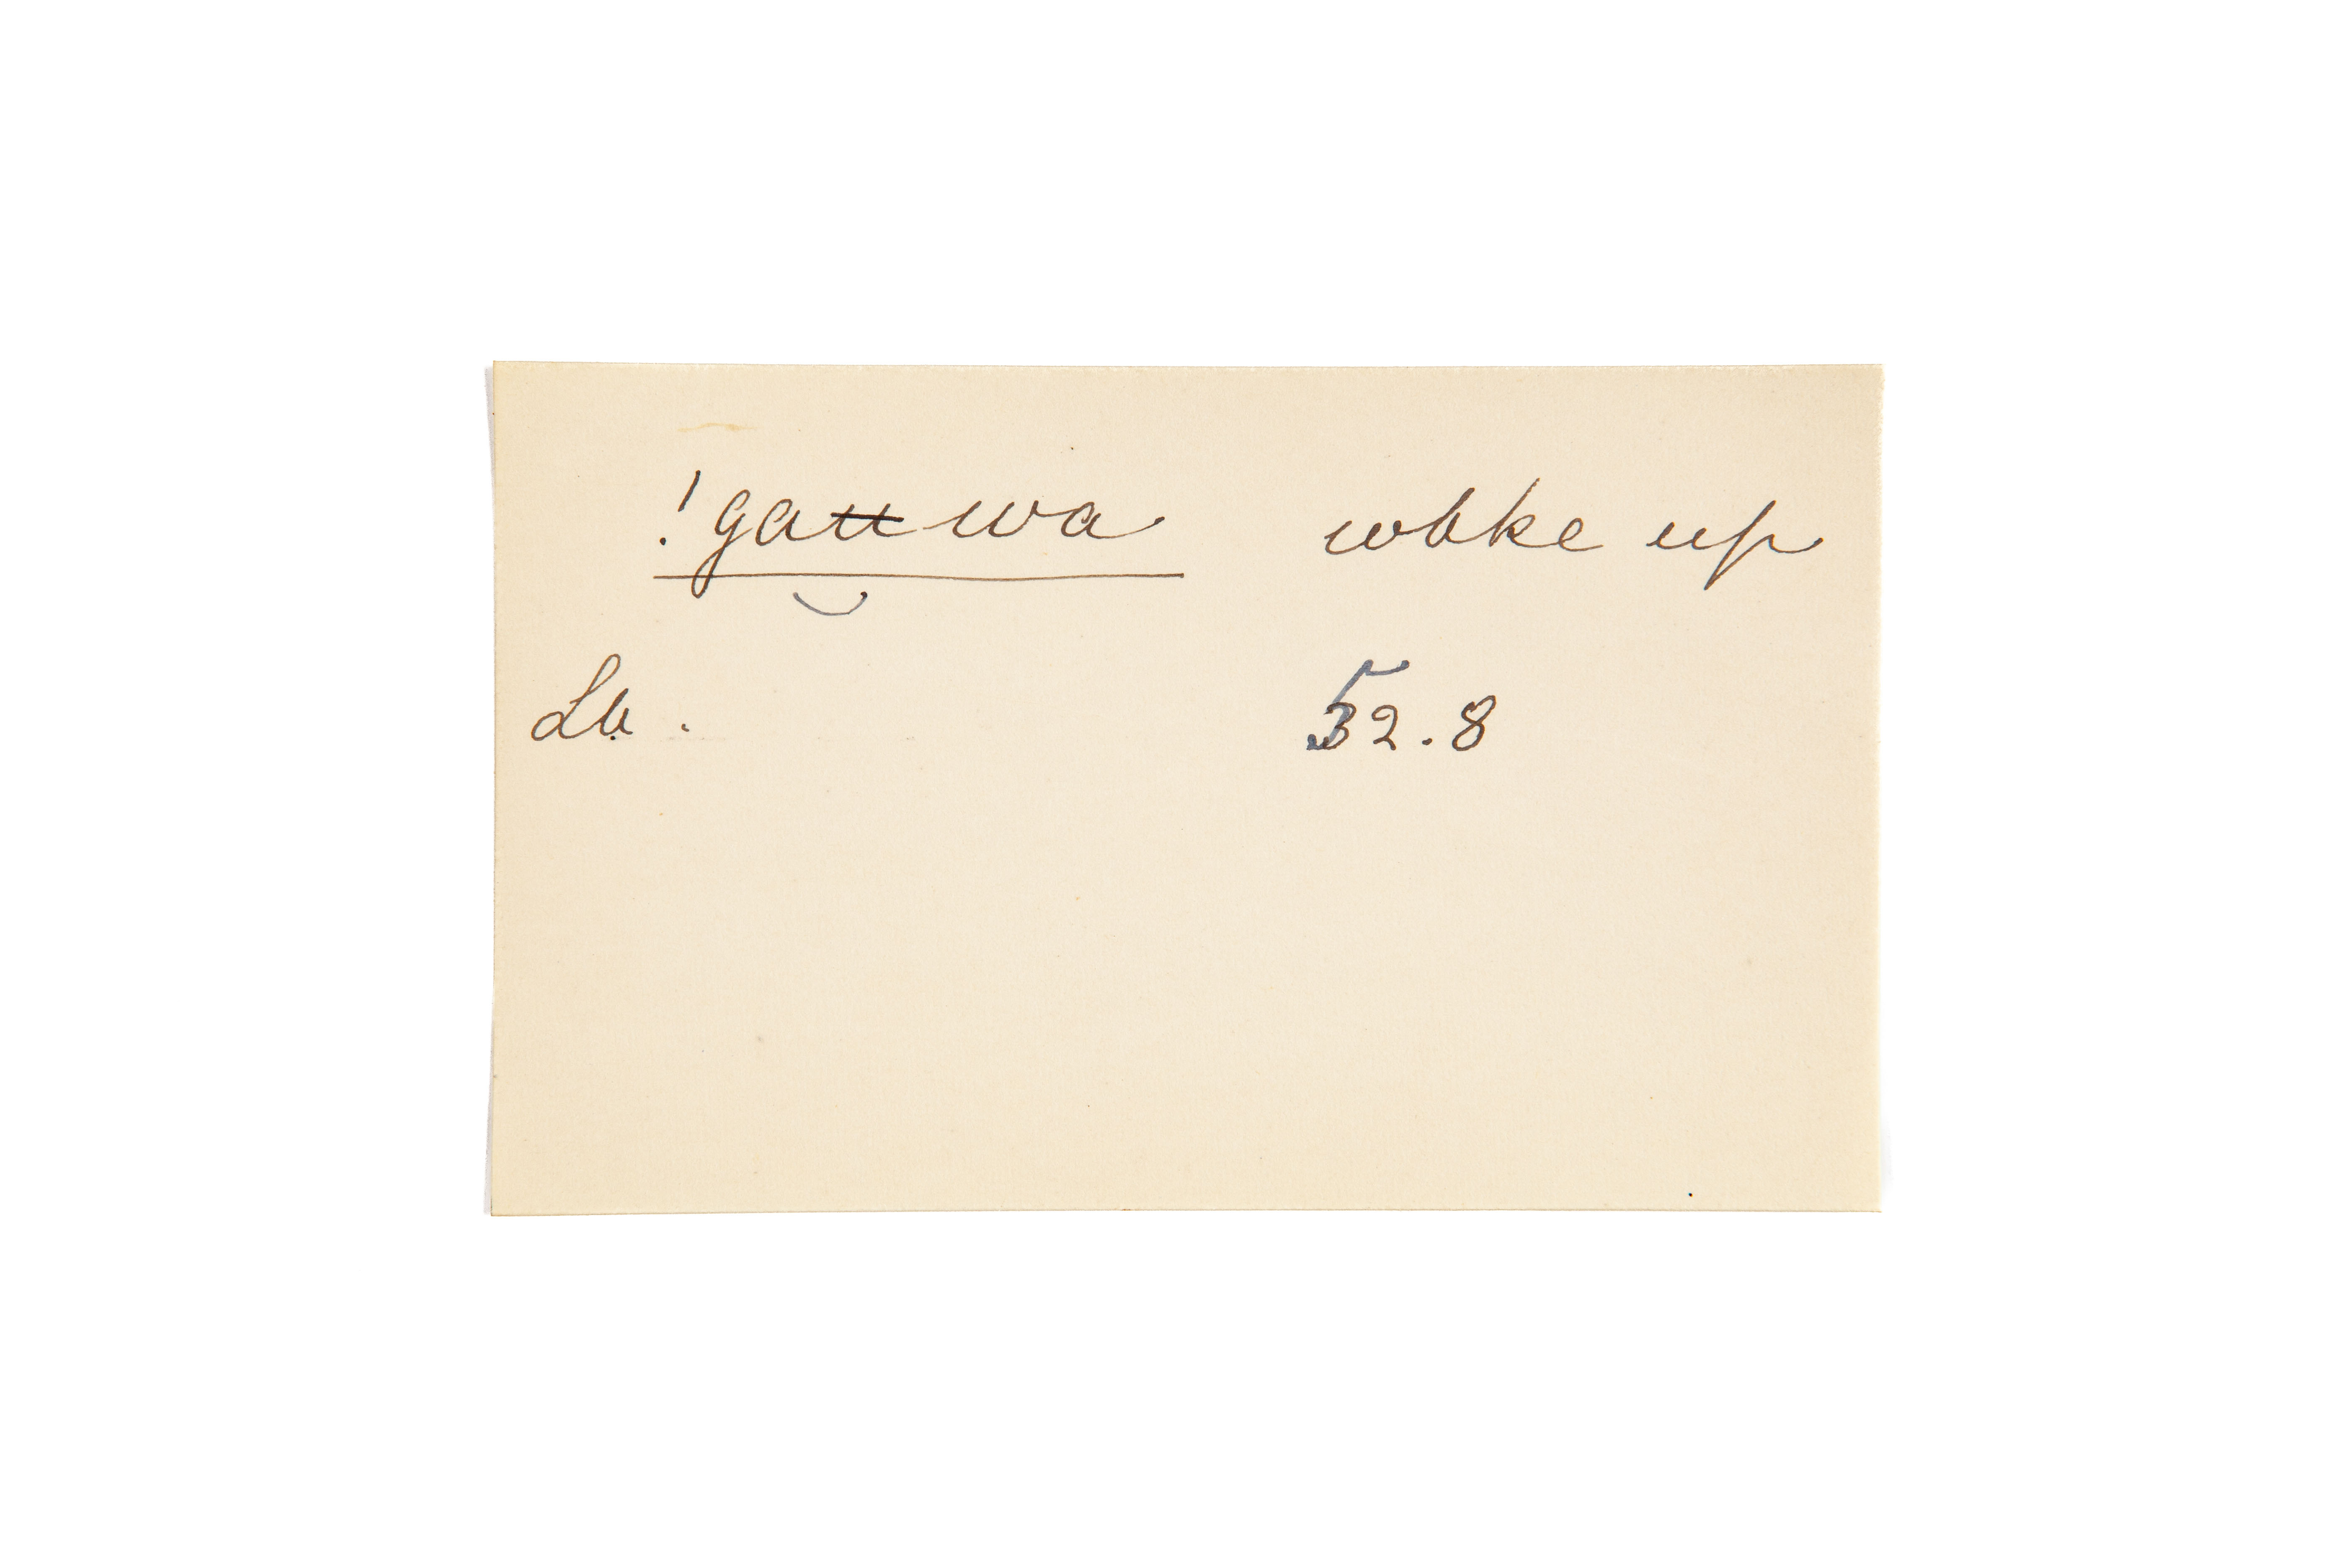 !gauwa woke up
Lb. 52.8